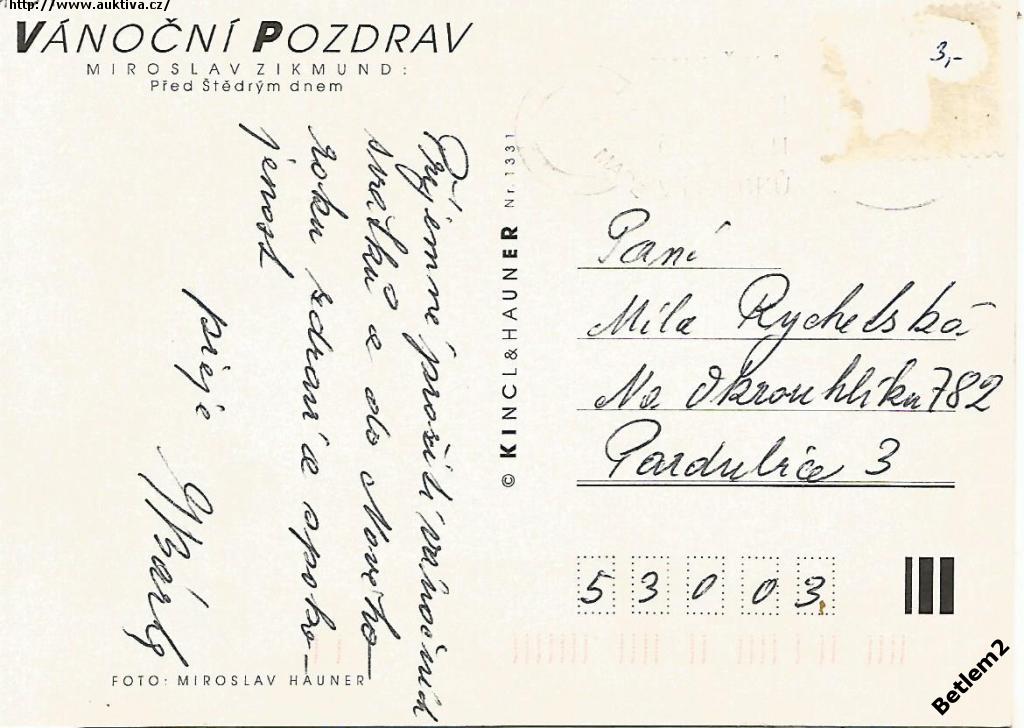 http://www.auktiva.cz/
VÁNOČNÍ POZDRAV
MIROSLAV ZIKMUND:
Před Štědrým dnem
Příjemné prožití vánočních
svátků a do Nového
roku zdraví a spoko-
jenost
přeje
FOTO: MIROSLAV HAUNER
© KINCL & HAUNER Nr. 1331
3,-
Paní
Míla Rychelská
Na Okrouhlíku 782
Pardubice 3
53003
Betlem2